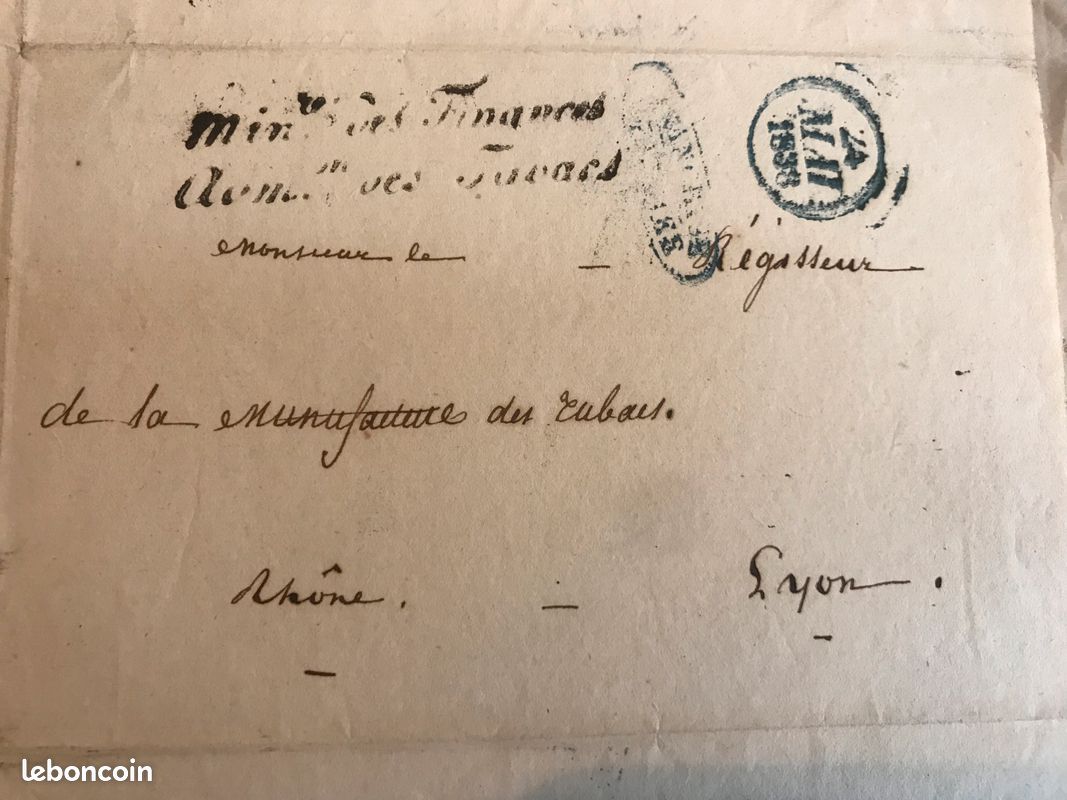 Min.re des Finances
Adm.on des Tabacs
4
MAI
1838
Monsieur le _ Régisseur
de la Manufacture des Tabacs.
Rhône. _ Lyon.
leboncoin